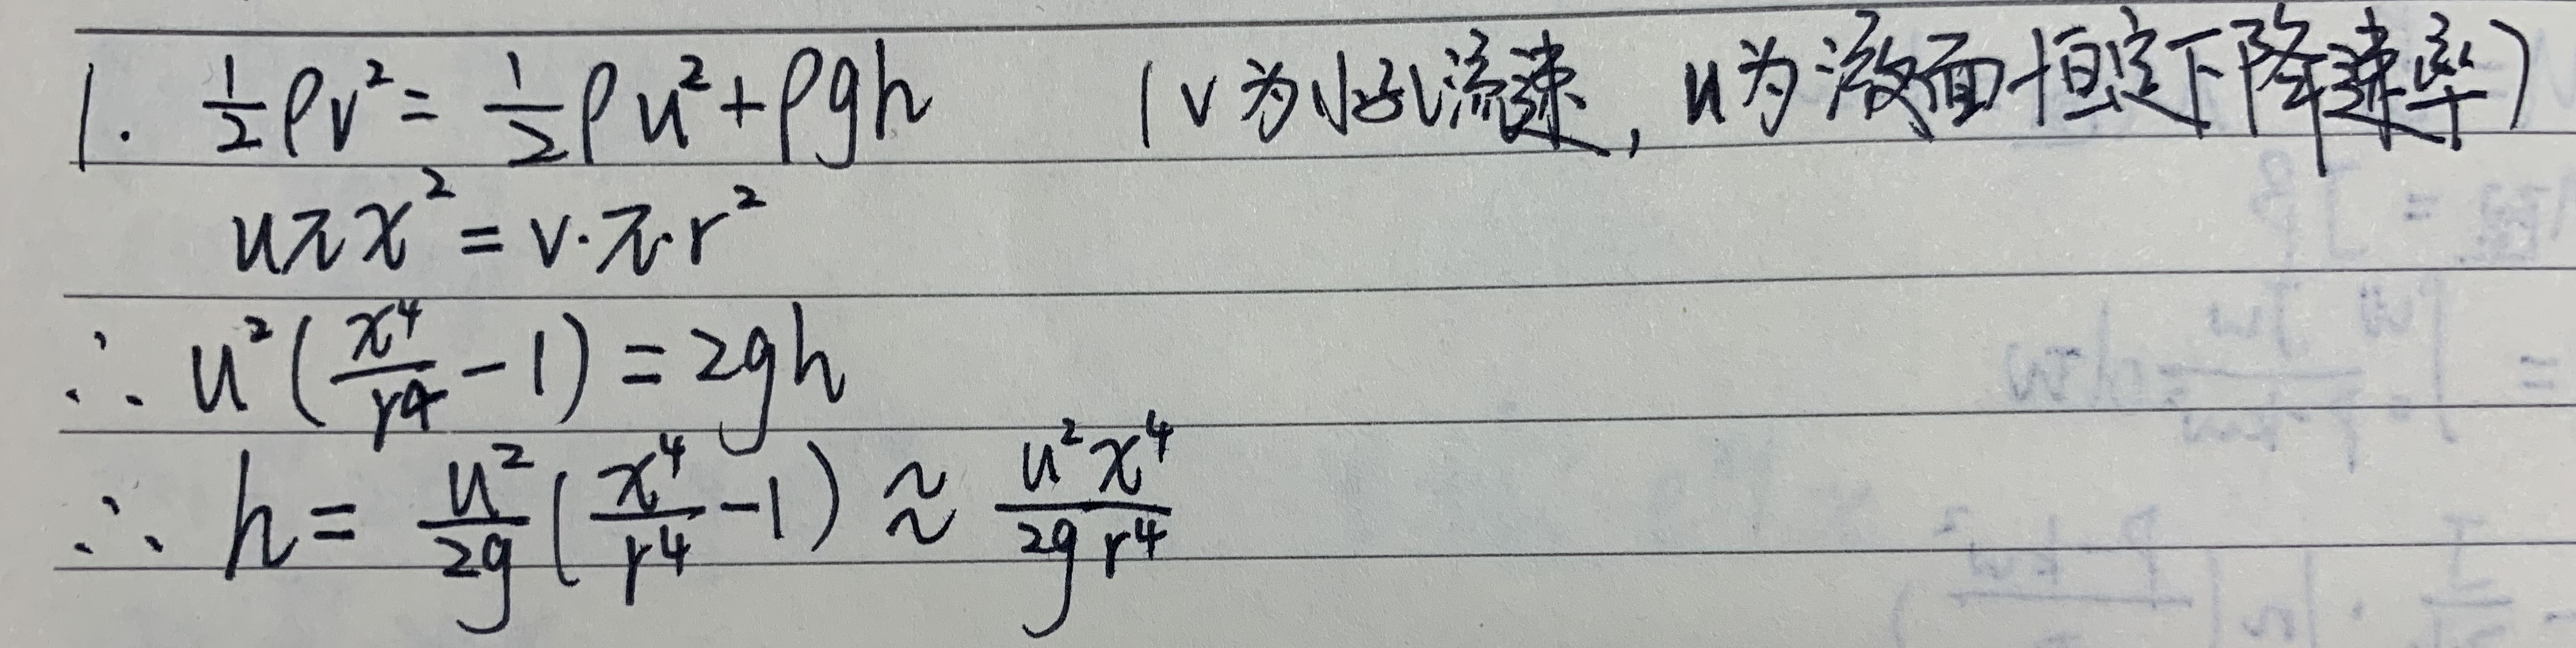 1. ½ρv² = ½ρu² + ρgh (v为小孔流速, u为液面恒定下降速率)
uπx² = v·π·r²
∴ u²(x⁴/r⁴ - 1) = 2gh
∴ h = u²/2g (x⁴/r⁴ - 1) ≈ u²x⁴/2gr⁴